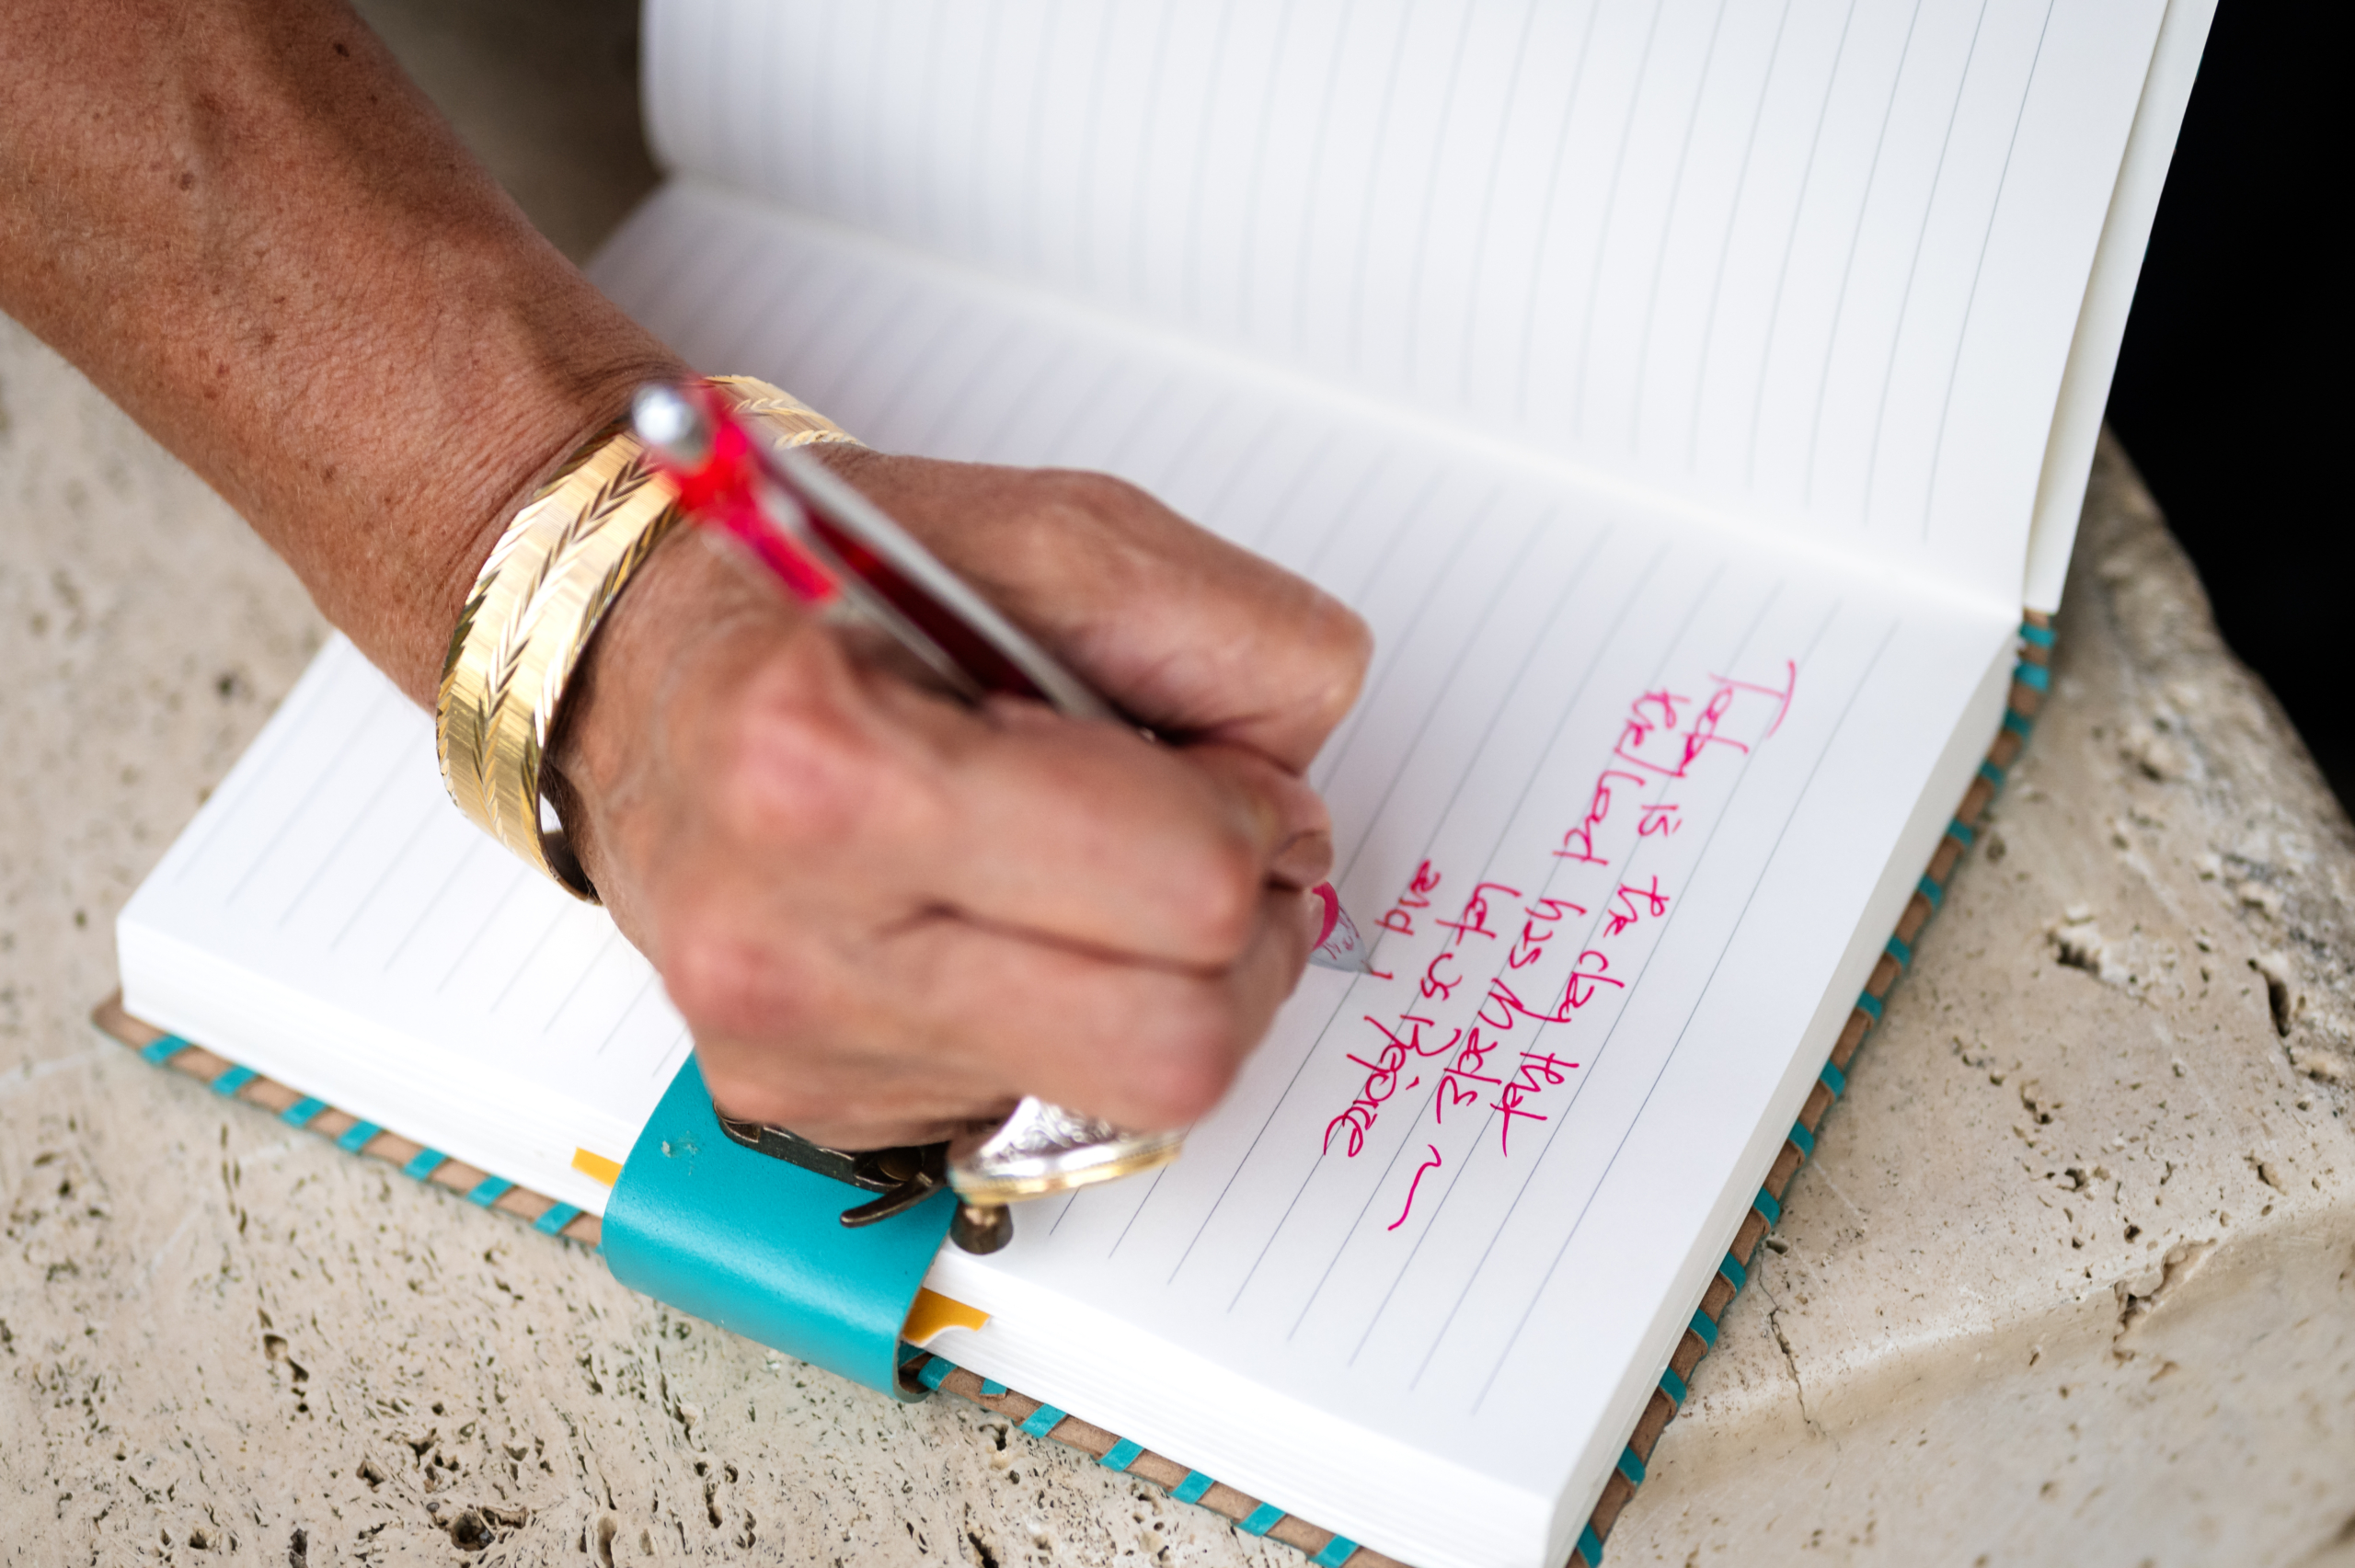 Today is the day that
the Lord has Made ~
let us Rejoice
and